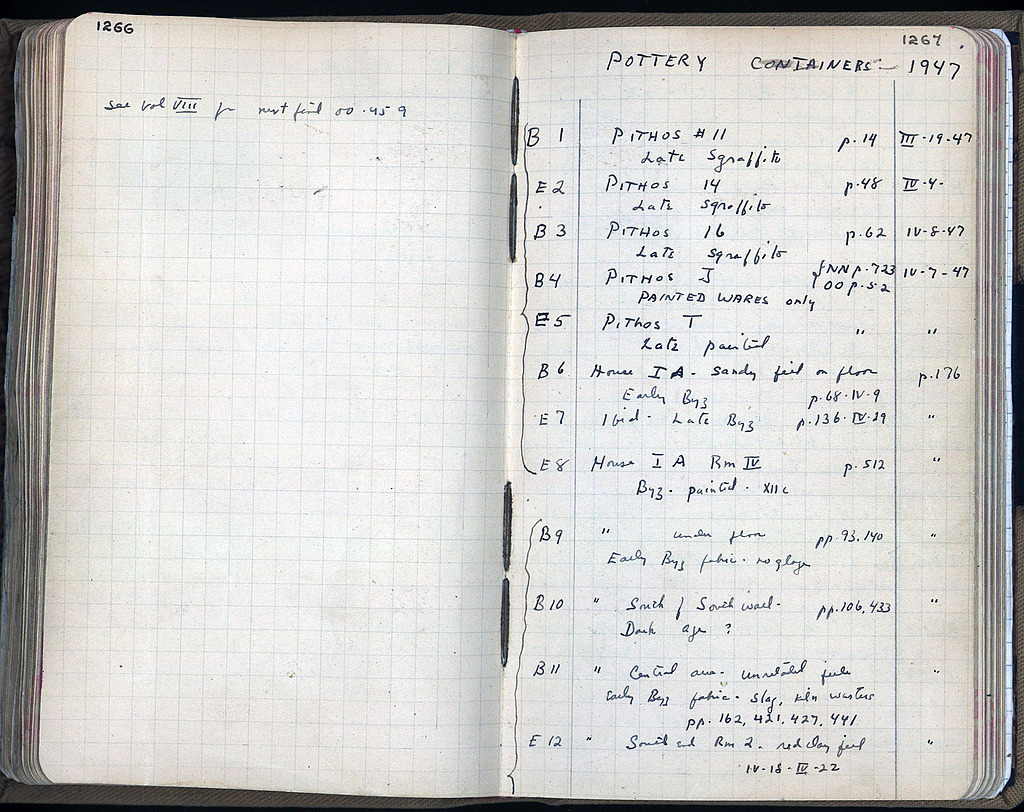 1266
see vol VIII for next find 00.459
1267
POTTERY CONTAINERS - 1947
B 1 PITHOS #11 p.14 III-19-47
Late Sgraffito
E 2 PITHOS 14 p.48 IV-4-
Late Sgraffito
B 3 PITHOS 16 p.62 IV-8-47
Late Sgraffito
B 4 PITHOS J { NN p.723 IV-7-47
OO p.52
PAINTED WARES only
E 5 Pithos T " "
Late painted
B 6 House I A - Sandy fill on floor p.176
Early Byz p.68-IV-9
E 7 Ibid - Late Byz p.136-IV-29 "
E 8 House I A Rm IV p.512 "
Byz - painted - XII c
B 9 " under floor pp.93,140 "
Early Byz fabric - no glaze
B 10 " South of South wall - pp.106,433 "
Dark age ?
B 11 " Central area - unrelated fill "
Early Byz fabric - slag, kiln wasters
pp. 162, 421, 427, 441
E 12 " South end Rm 2 - red clay fill "
IV-18-IV-22